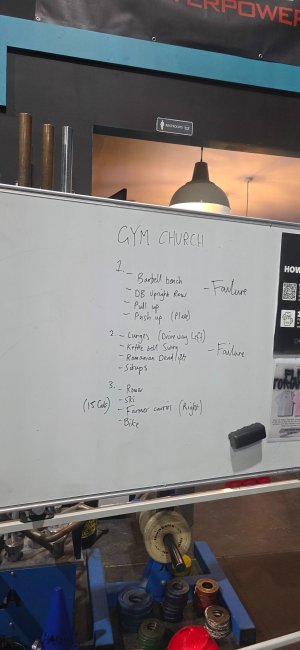 TERPOWER
RESTROOMS
GYM CHURCH
1. - Barbell bench
- DB Upright Row
- Pull up
- Push up (Plate)
- Failure
2. - Lunges (Driveway Left)
- Kettle bell Swing
- Romanian Deadlift
- Situps
- Failure
3. - Rower
- Ski
(15 Cal)
- Farmer carries (Right)
- Bike
HOW